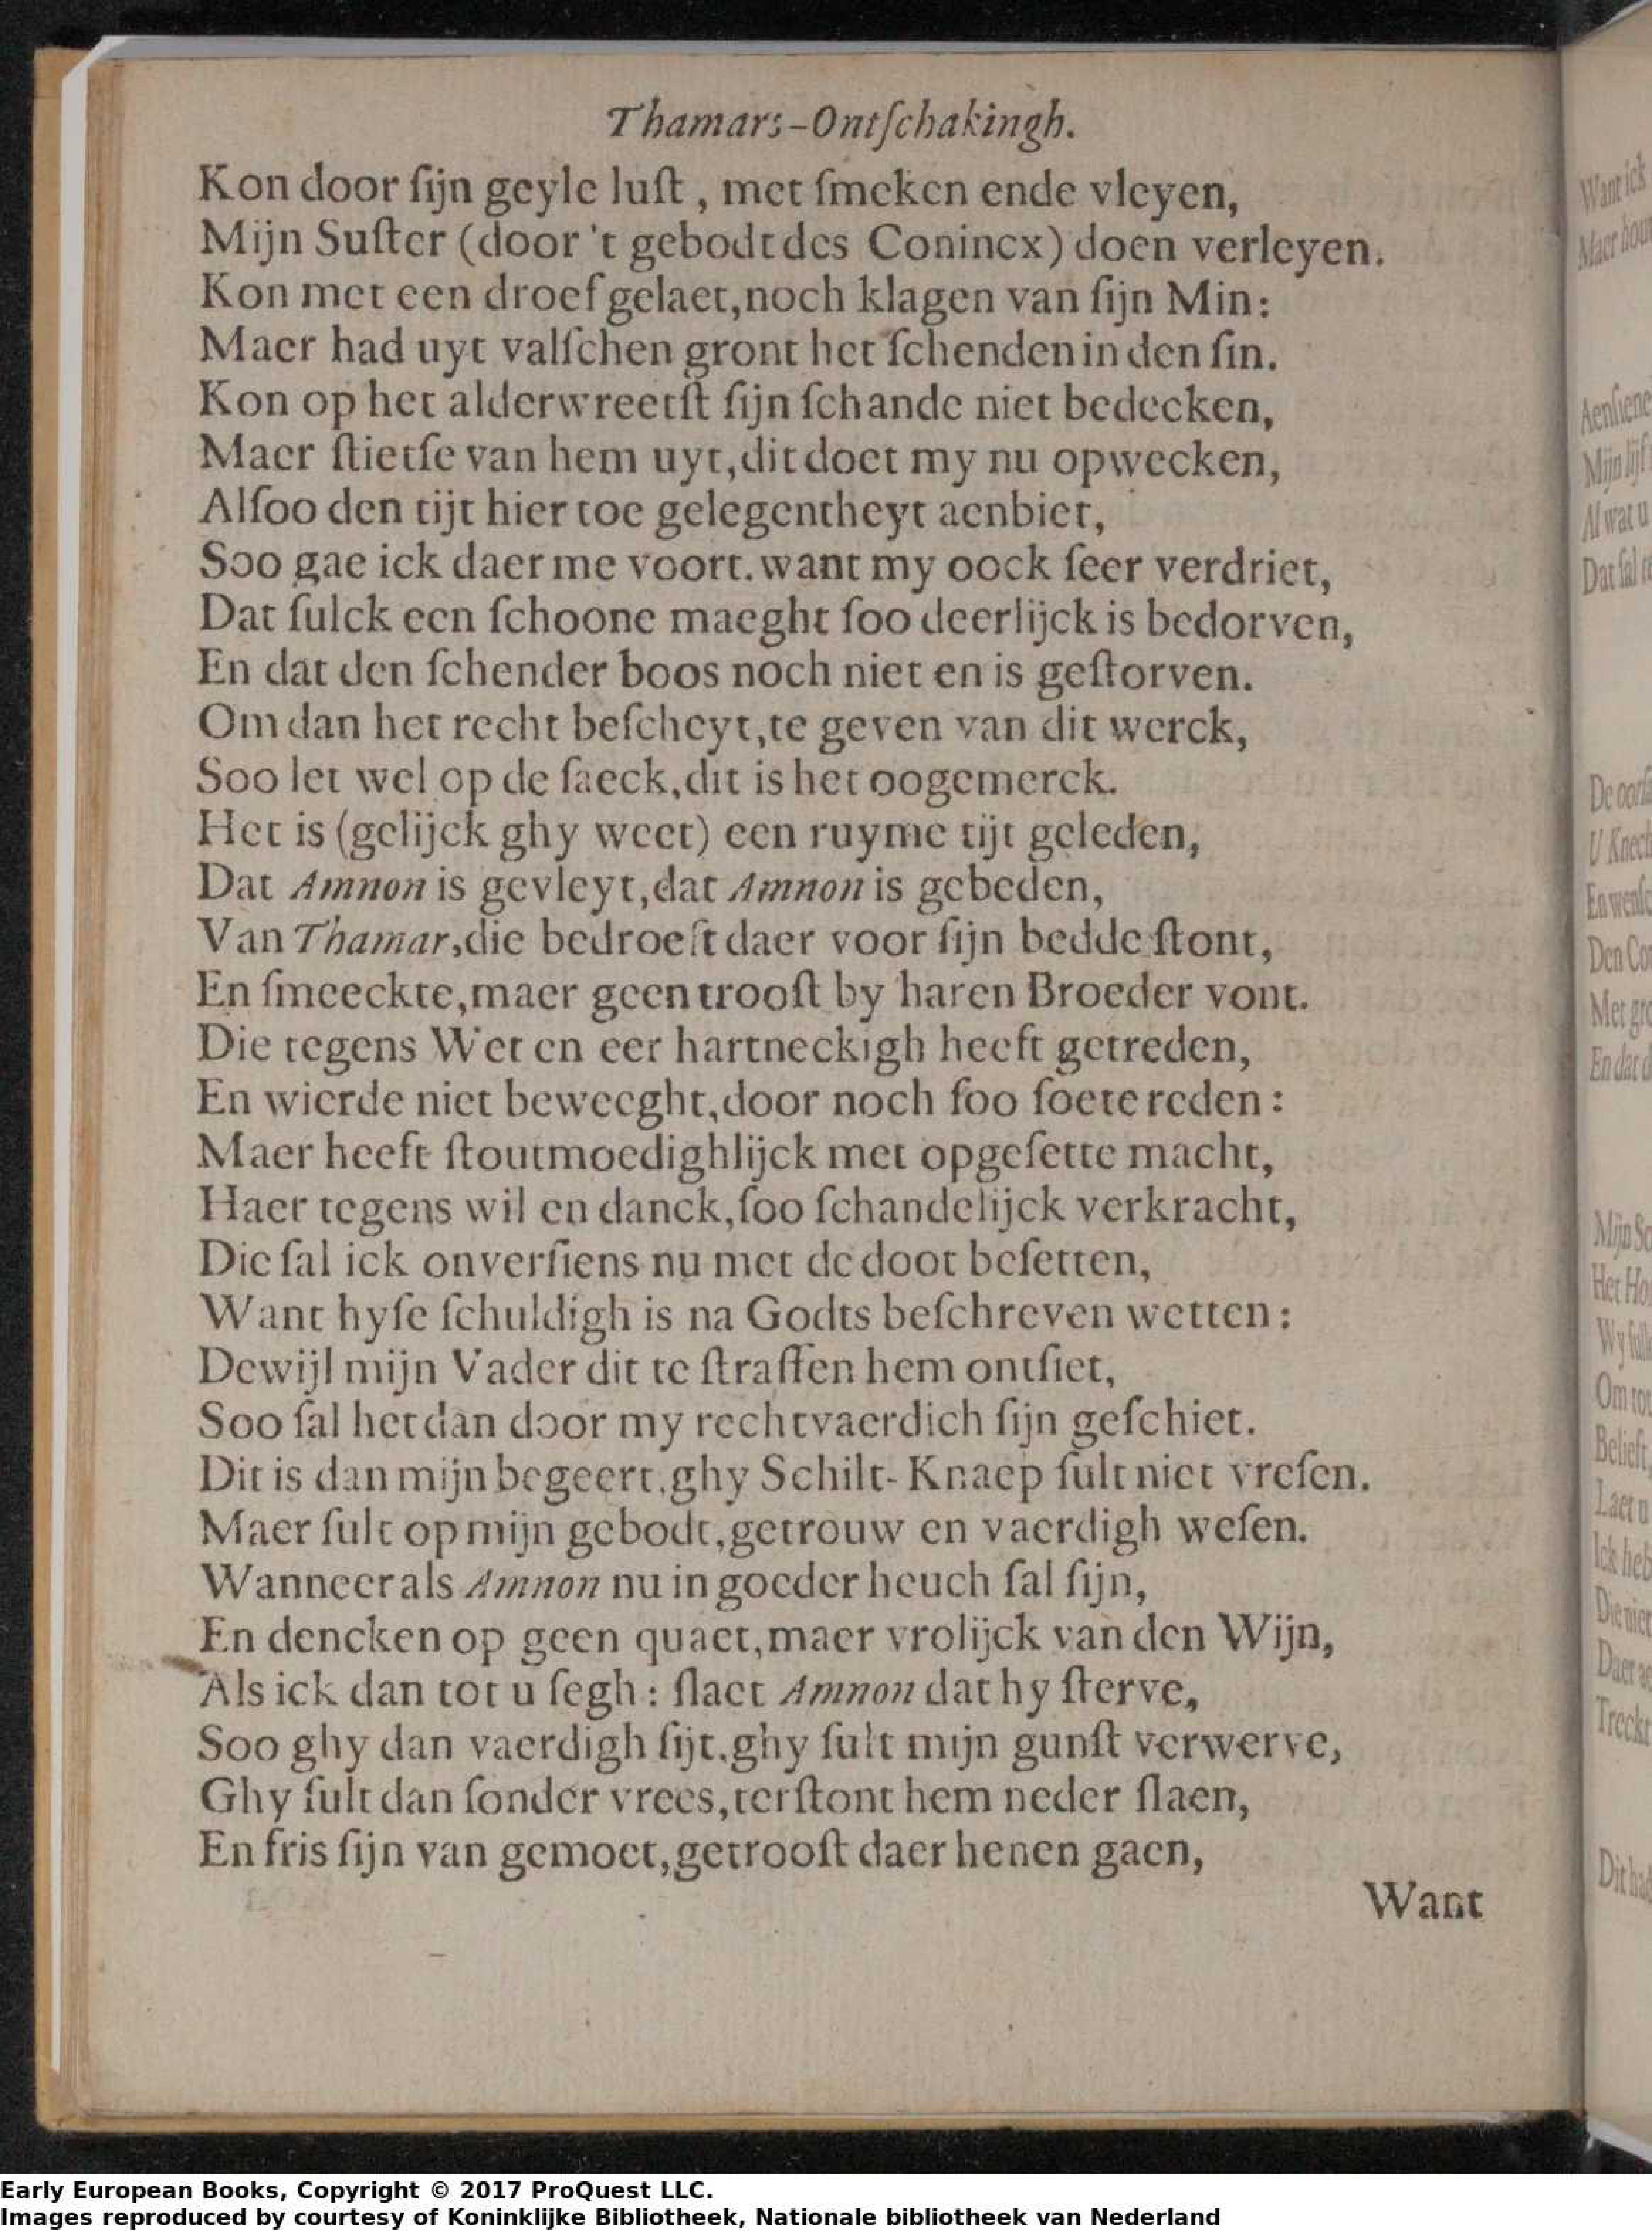 Thamars-Ontſchakingh.
Kon door ſijn geyle luſt, met ſmeken ende vleyen,
Mijn Suſter (door 't gebodt des Conincx) doen verleyen.
Kon met een droef gelaet, noch klagen van ſijn Min:
Maer had uyt valſchen gront het ſchenden in den ſin.
Kon op het alderwreetſt ſijn ſchande niet bedecken,
Maer ſtietſe van hem uyt, dit doet my nu opwecken,
Alſoo den tijt hier toe gelegentheyt aenbiet,
Soo gae ick daer me voort. want my oock ſeer verdriet,
Dat ſulck een ſchoone maeght ſoo deerlijck is bedorven,
En dat den ſchender boos noch niet en is geſtorven.
Om dan het recht beſcheyt, te geven van dit werck,
Soo let wel op de ſaeck, dit is het oogemerck.
Het is (gelijck ghy weet) een ruyme tijt geleden,
Dat Amnon is gevleyt, dat Amnon is gebeden,
Van Thamar, die bedroeft daer voor ſijn bedde ſtont,
En ſmeeckte, maer geen trooſt by haren Broeder vont.
Die tegens Wet en eer hartneckigh heeft getreden,
En wierde niet beweeght, door noch ſoo ſoete reden:
Maer heeft ſtoutmoedighlijck met opgeſette macht,
Haer tegens wil en danck, ſoo ſchandelijck verkracht,
Die ſal ick onverſiens nu met de doot beſetten,
Want hyſe ſchuldigh is na Godts beſchreven wetten:
Dewijl mijn Vader dit te ſtraffen hem ontſiet,
Soo ſal het dan door my rechtvaerdich ſijn geſchiet.
Dit is dan mijn begeert. ghy Schilt-Knaep ſult niet vreſen.
Maer ſult op mijn gebodt, getrouw en vaerdigh weſen.
Wanneer als Amnon nu in goeder heuch ſal ſijn,
En dencken op geen quaet, maer vrolijck van den Wijn,
Als ick dan tot u ſegh: ſlaet Amnon dat hy ſterve,
Soo ghy dan vaerdigh ſijt, ghy ſult mijn gunſt verwerve,
Ghy ſult dan ſonder vrees, terſtont hem neder ſlaen,
En fris ſijn van gemoet, getrooſt daer henen gaen,
Want
Want ick
Maer
Mijn lijf
Al wat u
Dat ſal
En
Den
Met
En dat
Mijn
Het
Om
Belieft,
Laet u
Ick heb
Die niet
Daer
Treckt
Dit
Early European Books, Copyright © 2017 ProQuest LLC.
Images reproduced by courtesy of Koninklijke Bibliotheek, Nationale bibliotheek van Nederland